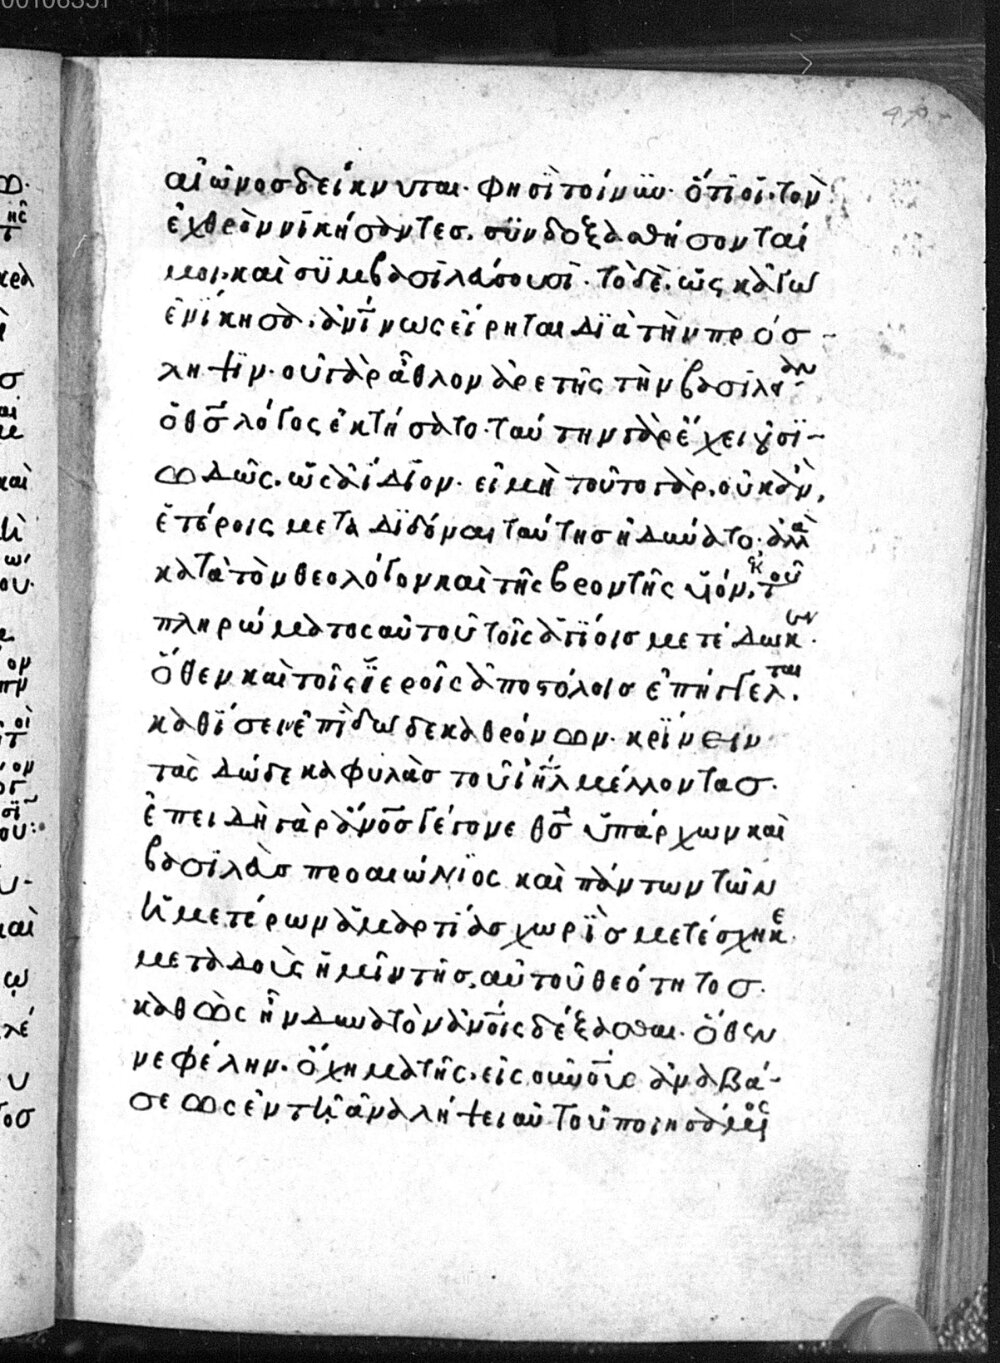 αἰῶνος δείκνυται· φησὶ τοίνυν· ὅτι οἱ τὸν
ἐχθρὸν νικήσαντες, συνδοξασθήσονταί
μοι· καὶ συμβασιλεύσουσι· τὸ δὲ, ὡς κἀγὼ
ἐνίκησα, ἀνινως εἴρηται διὰ τὴν πρόσ-
ληψιν· οὐ γὰρ ἆθλον ἀρετῆς τὴν βασιλείαν
ὁ θς λόγος ἐκτήσατο· ταύτην γὰρ ἔχει οὐσι-
ωδῶς, ὡς ἀΐδιον· εἰ μὴ τοῦτο γὰρ, οὐκ ἂν,
ἑτέροις μεταδιδόναι ταύτης ἠδύνατο· ἀλλὰ
κατὰ τὸν θεολόγον καὶ τῆς βροντῆς υἱόν, ἐκ τοῦ
πληρώματος αὐτοῦ τοῖς ἁγίοις μετέδωκεν·
ὅθεν καὶ τοῖς ἱεροῖς ἀποστόλοις ἐπήγγελται,
καθίσειν ἐπὶ δώδεκα θρόνων· κρίνειν
τὰς δώδεκα φυλὰς τοῦ ἰηλ μέλλοντας·
ἐπειδὴ γὰρ ἄνος γέγονε θς ὑπάρχων καὶ
βασιλεὺς προαιώνιος καὶ πάντων τῶν
ἡμετέρων ἁμαρτίας χωρὶς μετέσχηκε·
μεταδοὺς ἡμῖν τῆς αὐτοῦ θεότητος·
καθὼς ἦν δυνατὸν ἀνοις δέξασθαι· ὅθεν
νεφέλην· ὄχημα τῆς εἰς οὐνοὺς ἀναβά-
σεως ἐν τῇ ἀναλήψει αὐτοῦ ποιησάμενος